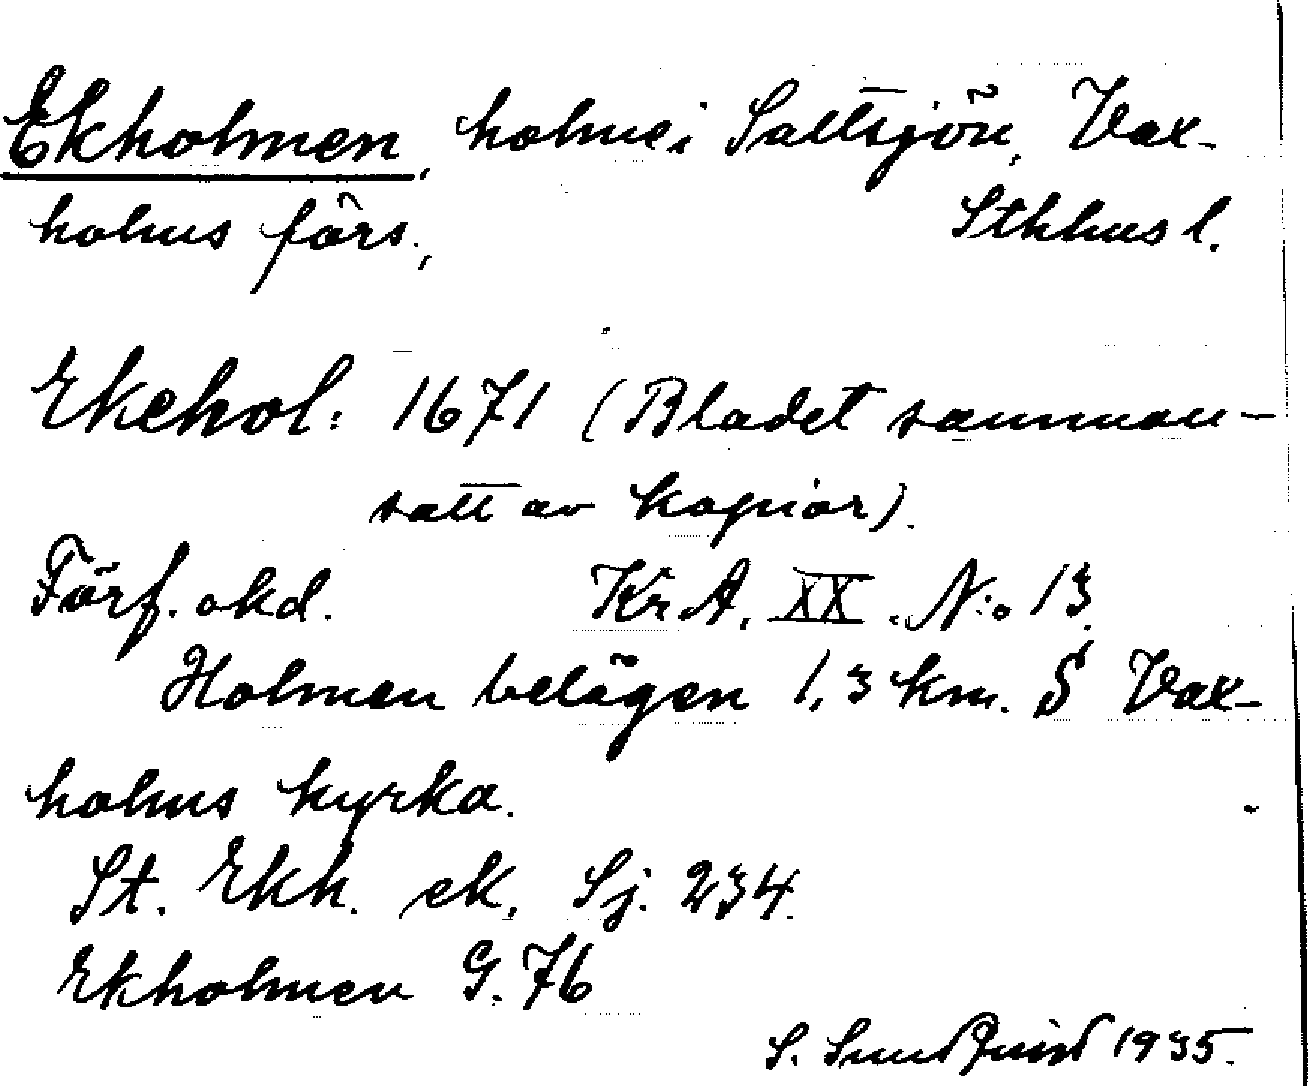 Ekholmen, holme i Saltsjön, Vax-
holms förs., Sthlms l.
Ekehol: 1671 (Bladet samman-
satt av kopior).
Förf. okd. Kr.A. XX. N:o 13.
Holmen belägen 1,3 km. S Vax-
holms kyrka.
St. Ekh. ek. Sj. 234.
Ekholmen G. 76
S. Sundquist 1935.